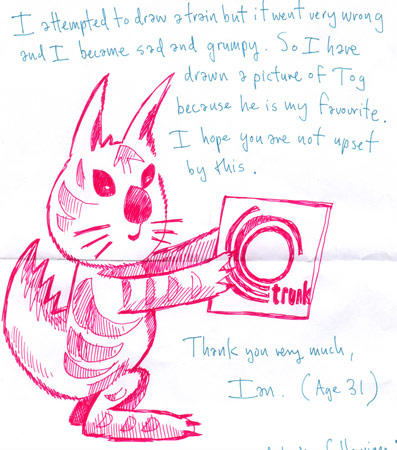 I attempted to draw a train but it went very wrong
and I became sad and grumpy. So I have
drawn a picture of Tog
because he is my favourite.
I hope you are not upset
by this.
trunk
Thank you very much,
Ian. (Age 31)